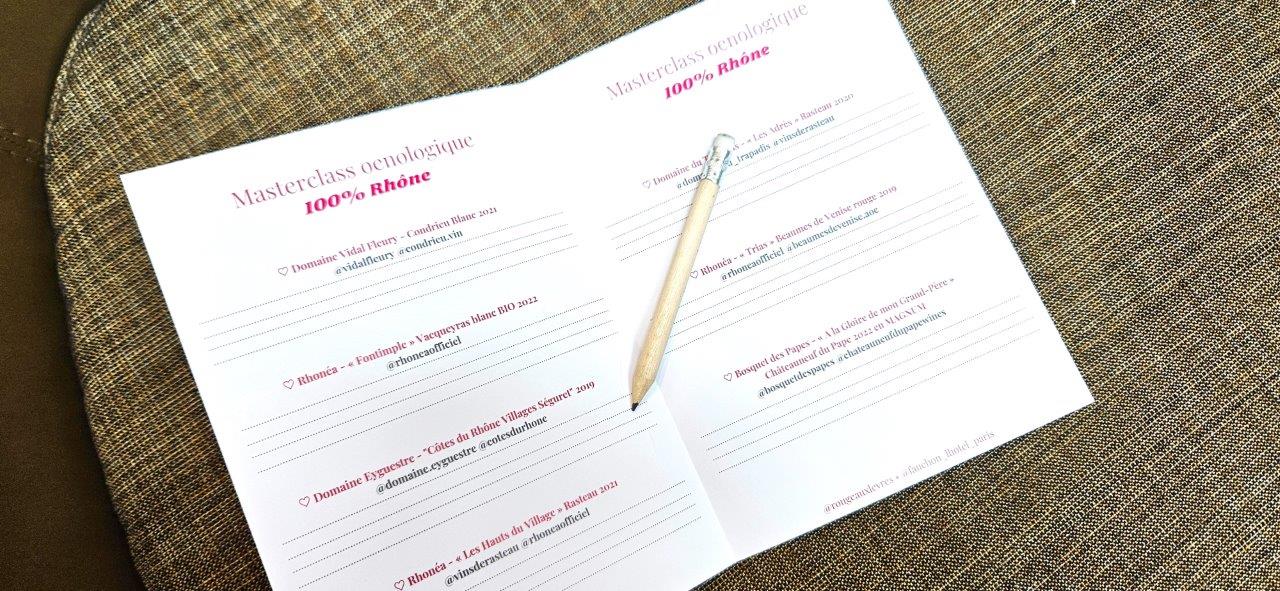 Masterclass oenologique
100% Rhône
♡ Domaine Vidal Fleury - Condrieu Blanc 2021
@vidalfleury @condrieu.vin
♡ Rhonéa - « Fontimple » Vacqueyras blanc BIO 2022
@rhoneaofficiel
♡ Domaine Eyguestre - "Côtes du Rhône Villages Séguret" 2019
@domaine.eyguestre @cotesdurhone
♡ Rhonéa - « Les Hauts du Village » Rasteau 2021
@vinsderasteau @rhoneaofficiel
Masterclass oenologique
100% Rhône
♡ Domaine du - « Les Adrès » Rasteau 2020
@vinsderasteau
♡ Rhonéa - « Trias » Beaumes de Venise rouge 2019
@rhoneaofficiel @beaumesdevenise.aoc
♡ Bosquet des Papes - « A la Gloire de mon Grand-Père »
Châteauneuf du Pape 2022 en MAGNUM
@bosquetdespapes @chateauneufdupapewines
@rougeauxlevres • @fanchon_lhotel_paris